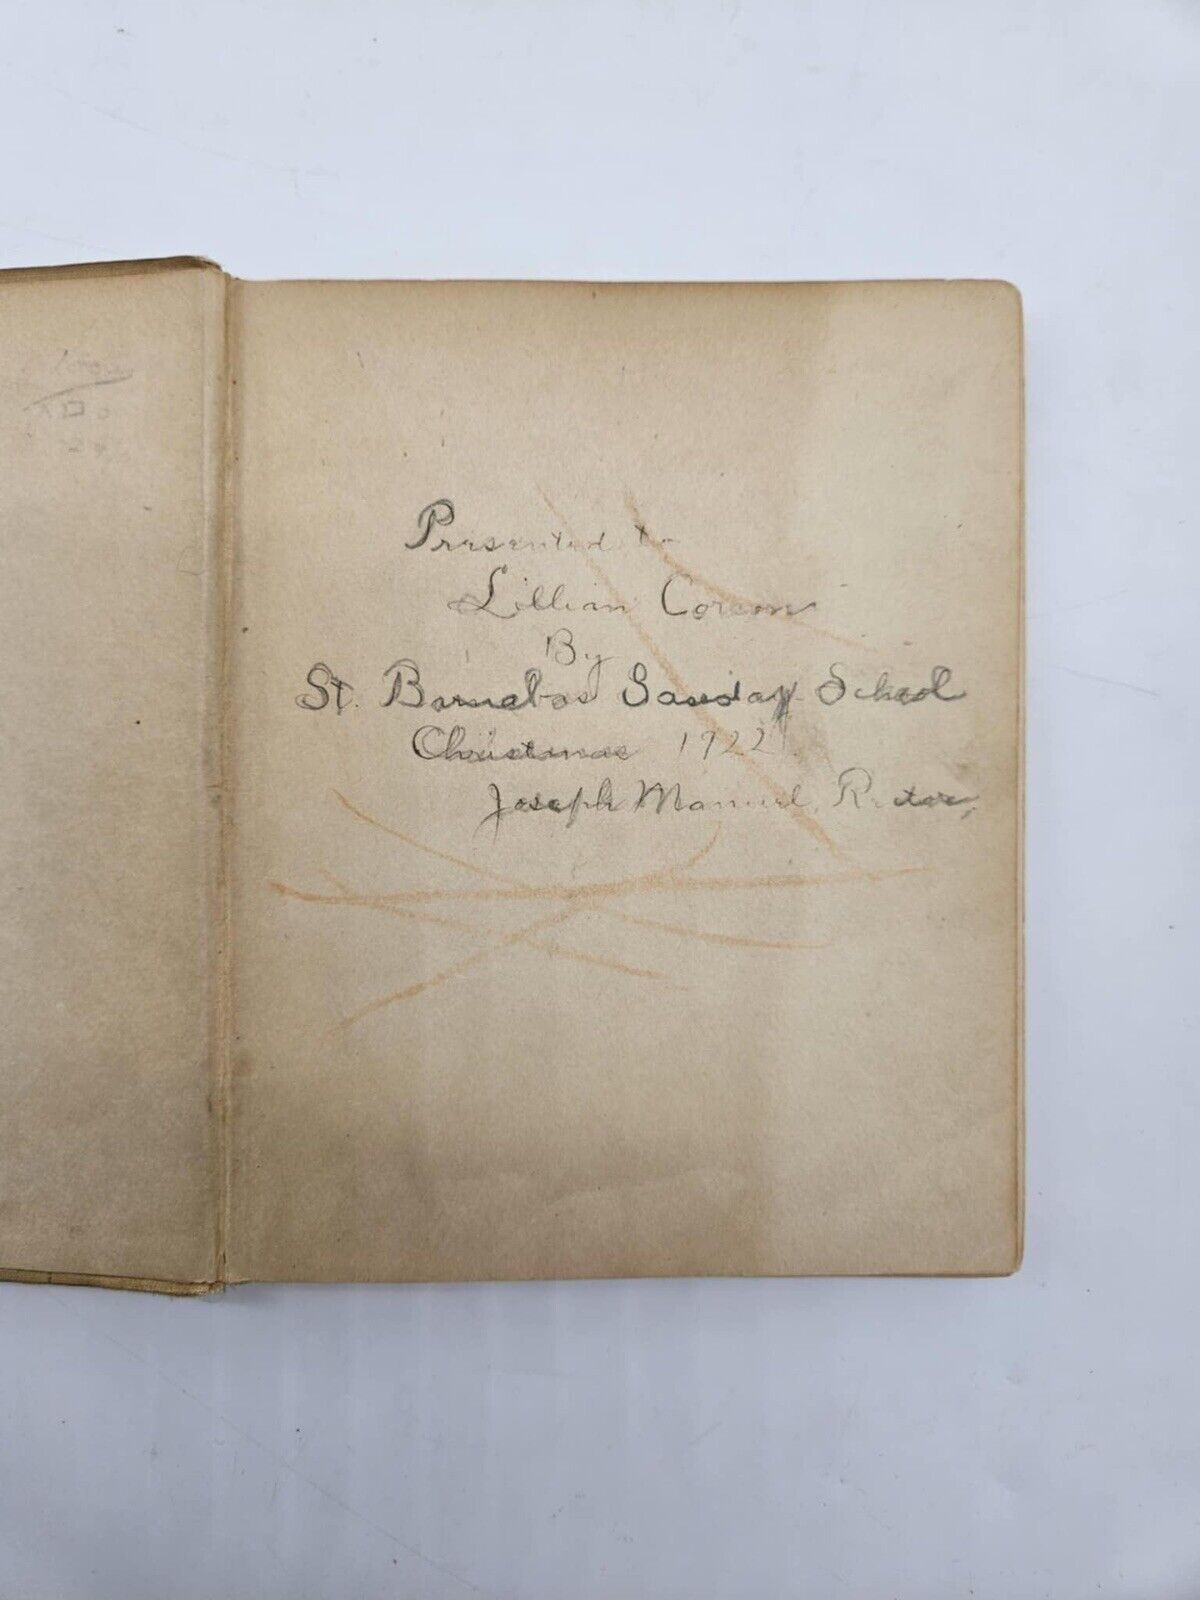 Presented to
Lillian Corson
By
St. Barnabas Sunday School
Christmas 1922.
Joseph Manuel, Rector,